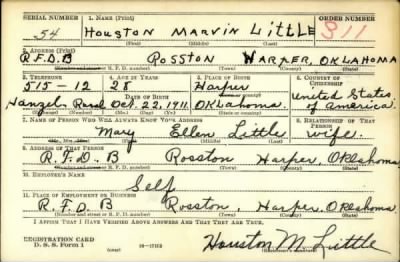 SERIAL NUMBER 1. NAME (Print) ORDER NUMBER
54 Houston Marvin Little 311
(First) (Middle) (Last)
2. ADDRESS (Print)
R.F.D.B Rosston Harper, Oklahoma
(Number and street or R. F. D. number) (Town) (County) (State)
3. TELEPHONE 4. AGE IN YEARS 5. PLACE OF BIRTH 6. COUNTRY OF CITIZENSHIP
515-12 28 Harper United States
DATE OF BIRTH
Rural Oct. 22, 1911 Oklahoma of America
(Exchange) (No.) (Mo.) (Day) (Yr.) (State or country)
7. NAME OF PERSON WHO WILL ALWAYS KNOW YOUR ADDRESS 8. RELATIONSHIP OF THAT PERSON
Mary Ellen Little wife
(Mr., Mrs., Miss) (First) (Middle) (Last)
9. ADDRESS OF THAT PERSON
R.F.D. B Rosston Harper Oklahoma
(Number and street or R. F. D. number) (Town) (County) (State)
10. EMPLOYER'S NAME
Self
11. PLACE OF EMPLOYMENT OR BUSINESS
R.F.D. B Rosston, Harper, Oklahoma
(Number and street or R. F. D. number) (Town) (County) (State)
I AFFIRM THAT I HAVE VERIFIED ABOVE ANSWERS AND THAT THEY ARE TRUE.
REGISTRATION CARD
D. S. S. Form 1 Houston M. Little